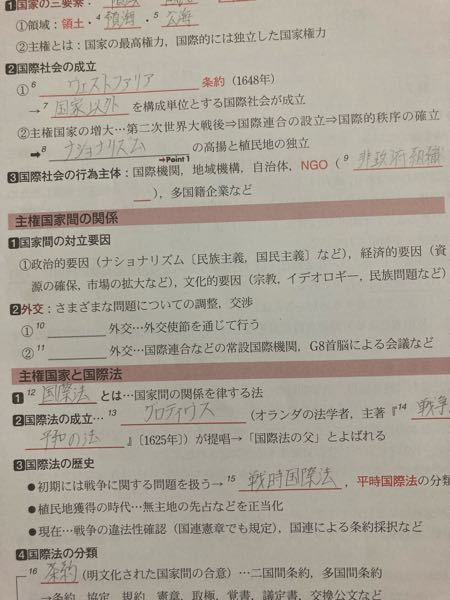 1国家の三要素
①領域：領土・4領海・5公海
②主権とは：国家の最高権力，国際的には独立した国家権力
2国際社会の成立
①6ウェストファリア条約（1648年）
→7国家以外を構成単位とする国際社会が成立
②主権国家の増大…第二次世界大戦後⇒国際連合の設立⇒国際的秩序の確立
➡8ナショナリズムの高揚と植民地の独立
➡Point1
3国際社会の行為主体：国際機関，地域機構，自治体，NGO（9非政府組織
），多国籍企業など
主権国家間の関係
1国家間の対立要因
①政治的要因（ナショナリズム〔民族主義，国民主義〕など），経済的要因（資
源の確保，市場の拡大など），文化的要因（宗教，イデオロギー，民族問題など）
2外交：さまざまな問題についての調整，交渉
①10 外交…外交使節を通じて行う
②11 外交…国際連合などの常設国際機関，G8首脳による会議など
主権国家と国際法
1 12国際法とは…国家間の関係を律する法
2国際法の成立…13クロティウス（オランダの法学者，主著『14戦争
平和の法』〔1625年〕）が提唱→「国際法の父」とよばれる
3国際法の歴史
●初期には戦争に関する問題を扱う→15戦時国際法，平時国際法の分類
●植民地獲得の時代…無主地の先占などを正当化
●現在…戦争の違法性確認（国連憲章でも規定），国連による条約採択など
4国際法の分類
16条約（明文化された国家間の合意）…二国間条約，多国間条約
→条約，協定，規約，憲章，取極，覚書，議定書，交換公文など